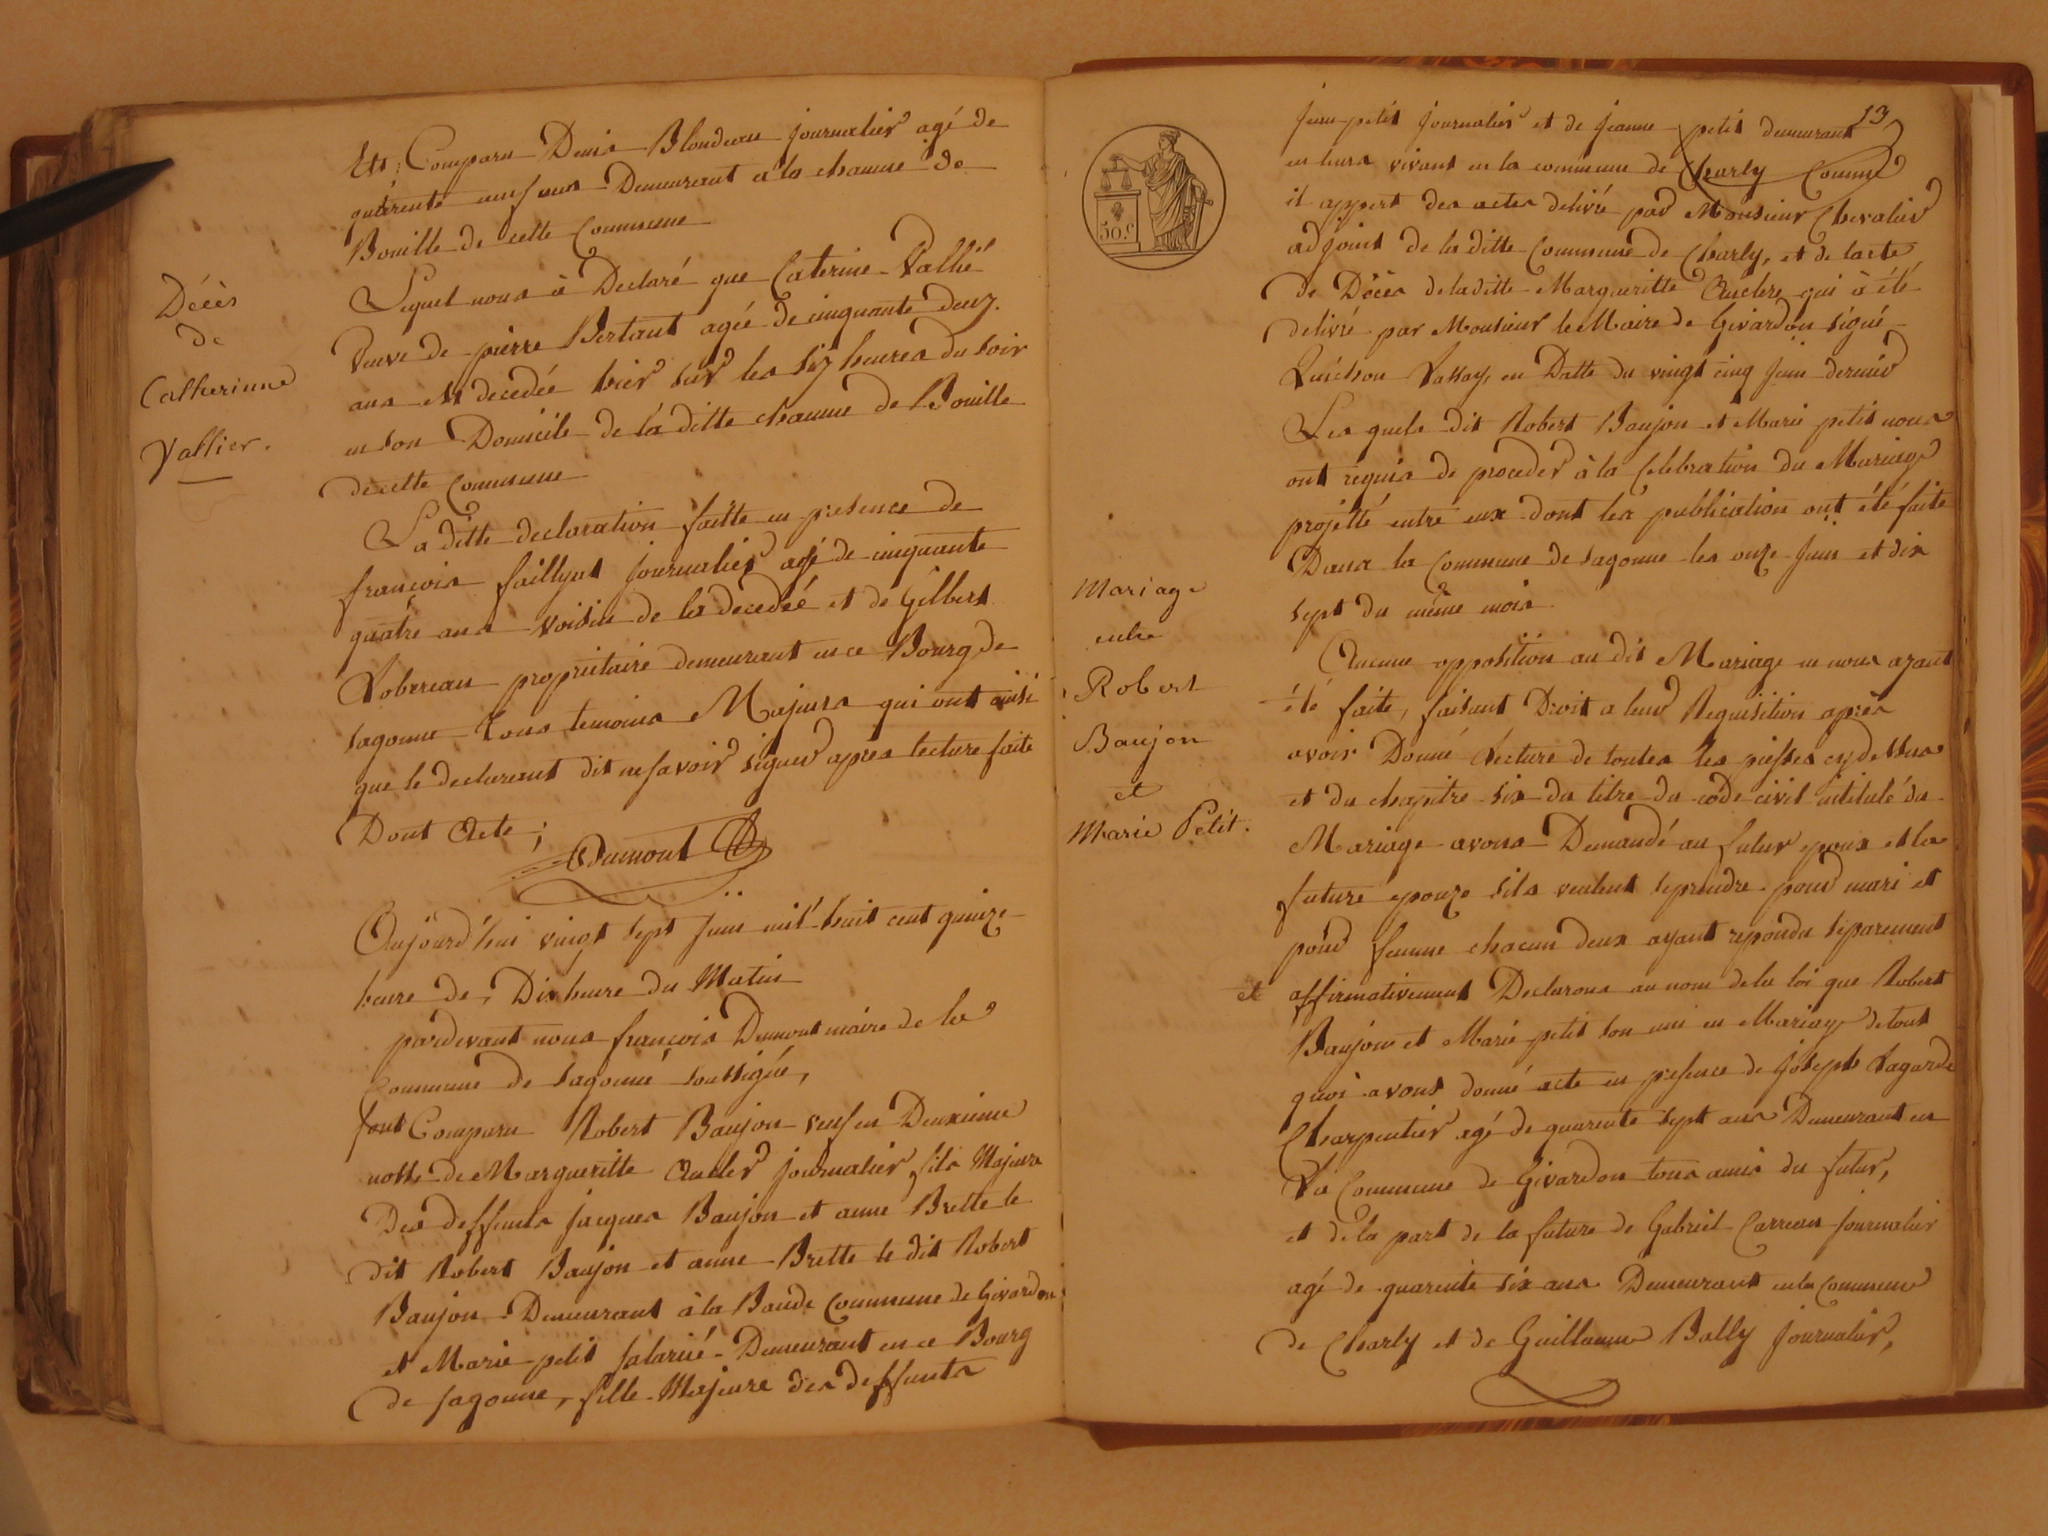 Décès
de
Catherinne
Vallier.
Est Comparu Denis Blondeau journalier agé de
quarente neuf ans Demeurant a la chaume de
Bouille de cette Commune
Lequel nous à Declaré que Caterine Vallié
veuve de pierre Bertaut agée de cinquante deux
ans est decedée hier sur les six heures du soir
en son Domicile de la ditte chaume de Bouille
de cette Commune
La ditte declaration faitte en presence de
françois faillyat journalier agé de cinquante
quatre ans voisin de la decedée et de Gilbert
Lobereau proprietaire demeurant en ce Bourg de
sagonne tous temoins Majeurs qui ont ainsi
que le declarant dit ne savoir signer apres lecture faite
Dont Acte ;
Dumont
Aujourd'hui vingt sept juin mil huit cent quinze
heure de Dix heure du Matin
pardevant nous françois Dumont maire de la
Commune de sagonne soussigné,
sont Comparu Robert Baujon veuf en Deuxieme
nosse de Margueritte Aucler journalier fils Majeur
Des deffunts jacques Baujon et anne Brette le
dit Robert Baujon et anne Brette le dit Robert
Baujon Demeurant à la Baude Commune de Givardon
et Marie petit salarié Demeurant en ce Bourg
de sagonne, fille Majeure des deffunts
13
50 c
Mariage
entre
Robert
Baujon
et
Marie Petit.
jean petit journalier et de jeanne petit demeurant
en leurs vivant en la commune de Charly Comme
il appert des actes delivré par Monsieur Chevalier
adjoint de la ditte Commune de Charly, et de lacte
de Décès de laditte Margueritte Auclere qui à été
delivré par Monsieur le Maire de Givardon signé
en Datte du vingt cinq juin dernier
Les quels dit Robert Baujon et Marie petit nous
ont requis de proceder à la Celebration du Mariage
projetté entre eux dont les publication ont été faite
Dans la Commune de sagonne les onze juin et dix
sept du même mois
Aucune opposition au dit Mariage ne nous ayant
été faite, faisant Droit a leur Requisition après
avoir Donné Lecture de toutes les piesses cy dessus
et du chapitre six du titre du code civil intitulé du
Mariage avons Demandé au futur epoux et la
future epouze sils veulent seprendre pour mari et
pour femme chacun deux ayant repondu séparement
et affirmativement Declarons au nom de la loi que Robert
Baujon et Marie petit son uni en Mariage de tout
quoi avons donné acte en presence de joseph Lagarde
Charpentier agé de quarente sept ans Demeurant en
La Commune de Givardon tous amis du futur,
et de la part de la future de Gabriel Carreau journalier
agé de quarente six ans Demeurant en la Commune
de Charly et de Guillaume Bally journalier,